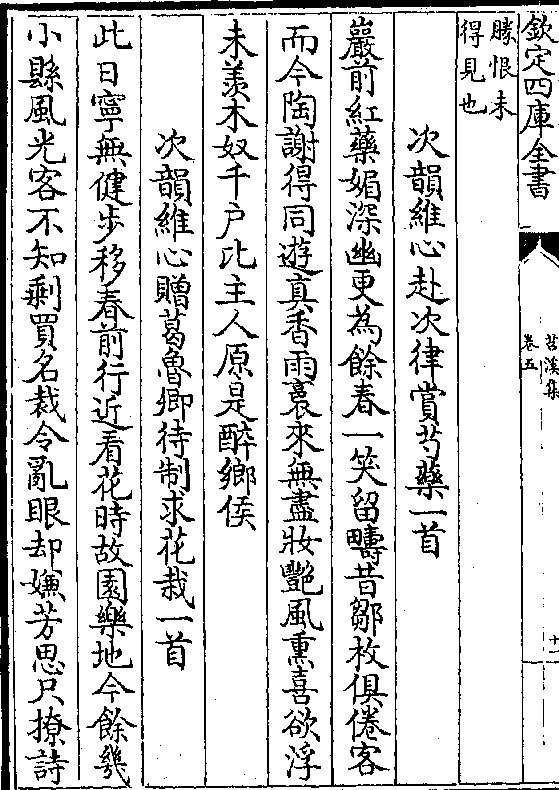 欽定四庫全書
苕溪集
卷五
十一
勝恨未
得見也
次韻維心赴次律賞芍藥一首
巖前紅藥媚深幽更為餘春一笑留疇昔鄒枚俱倦客
而今陶謝得同遊真香雨裛來無盡妝艷風熏喜欲浮
未羨木奴千户比主人原是醉鄉侯
次韻維心贈葛魯卿待制求花栽一首
此日寧無健步移春前行近看花時故園樂地今餘幾
小縣風光客不知剩買名栽令亂眼却嫌芳思只撩詩